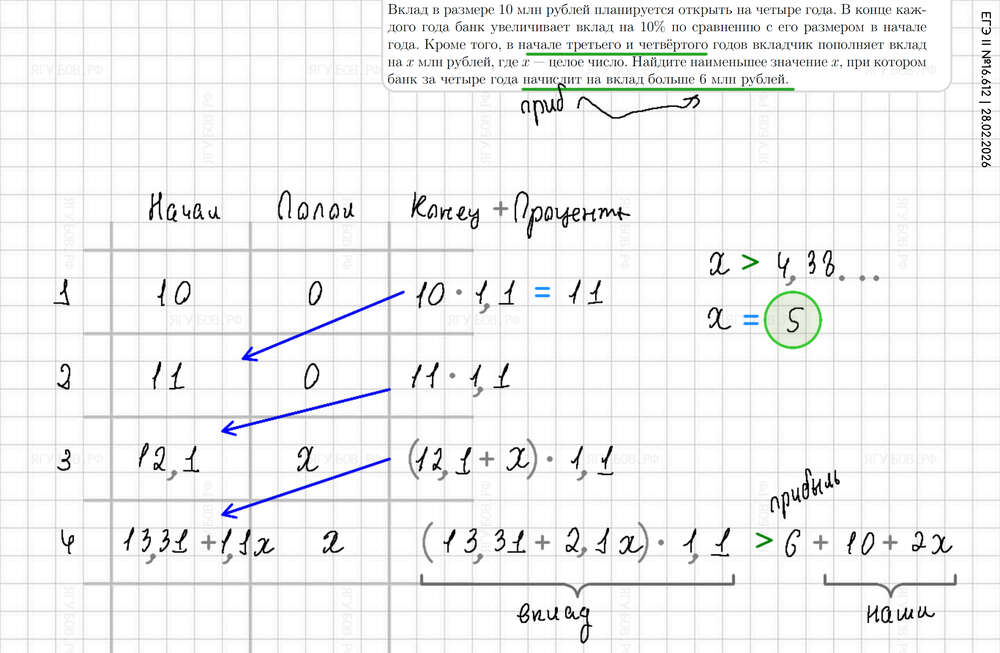 Вклад в размере 10 млн рублей планируется открыть на четыре года. В конце каж-
дого года банк увеличивает вклад на 10% по сравнению с его размером в начале
года. Кроме того, в начале третьего и четвёртого годов вкладчик пополняет вклад
на x млн рублей, где x — целое число. Найдите наименьшее значение x, при котором
банк за четыре года начислит на вклад больше 6 млн рублей.
ЕГЭ II №16.612 | 28.02.2026
приб
Начал Попол Конец + Проценты
x > 4,38...
1 10 0 10 · 1,1 = 11
x = 5
2 11 0 11 · 1,1
3 12,1 x (12,1 + x) · 1,1
прибыль
4 13,31 + 1,1x x (13,31 + 2,1x) · 1,1 > 6 + 10 + 2x
вклад наши
ЯГУБОВ.РФ